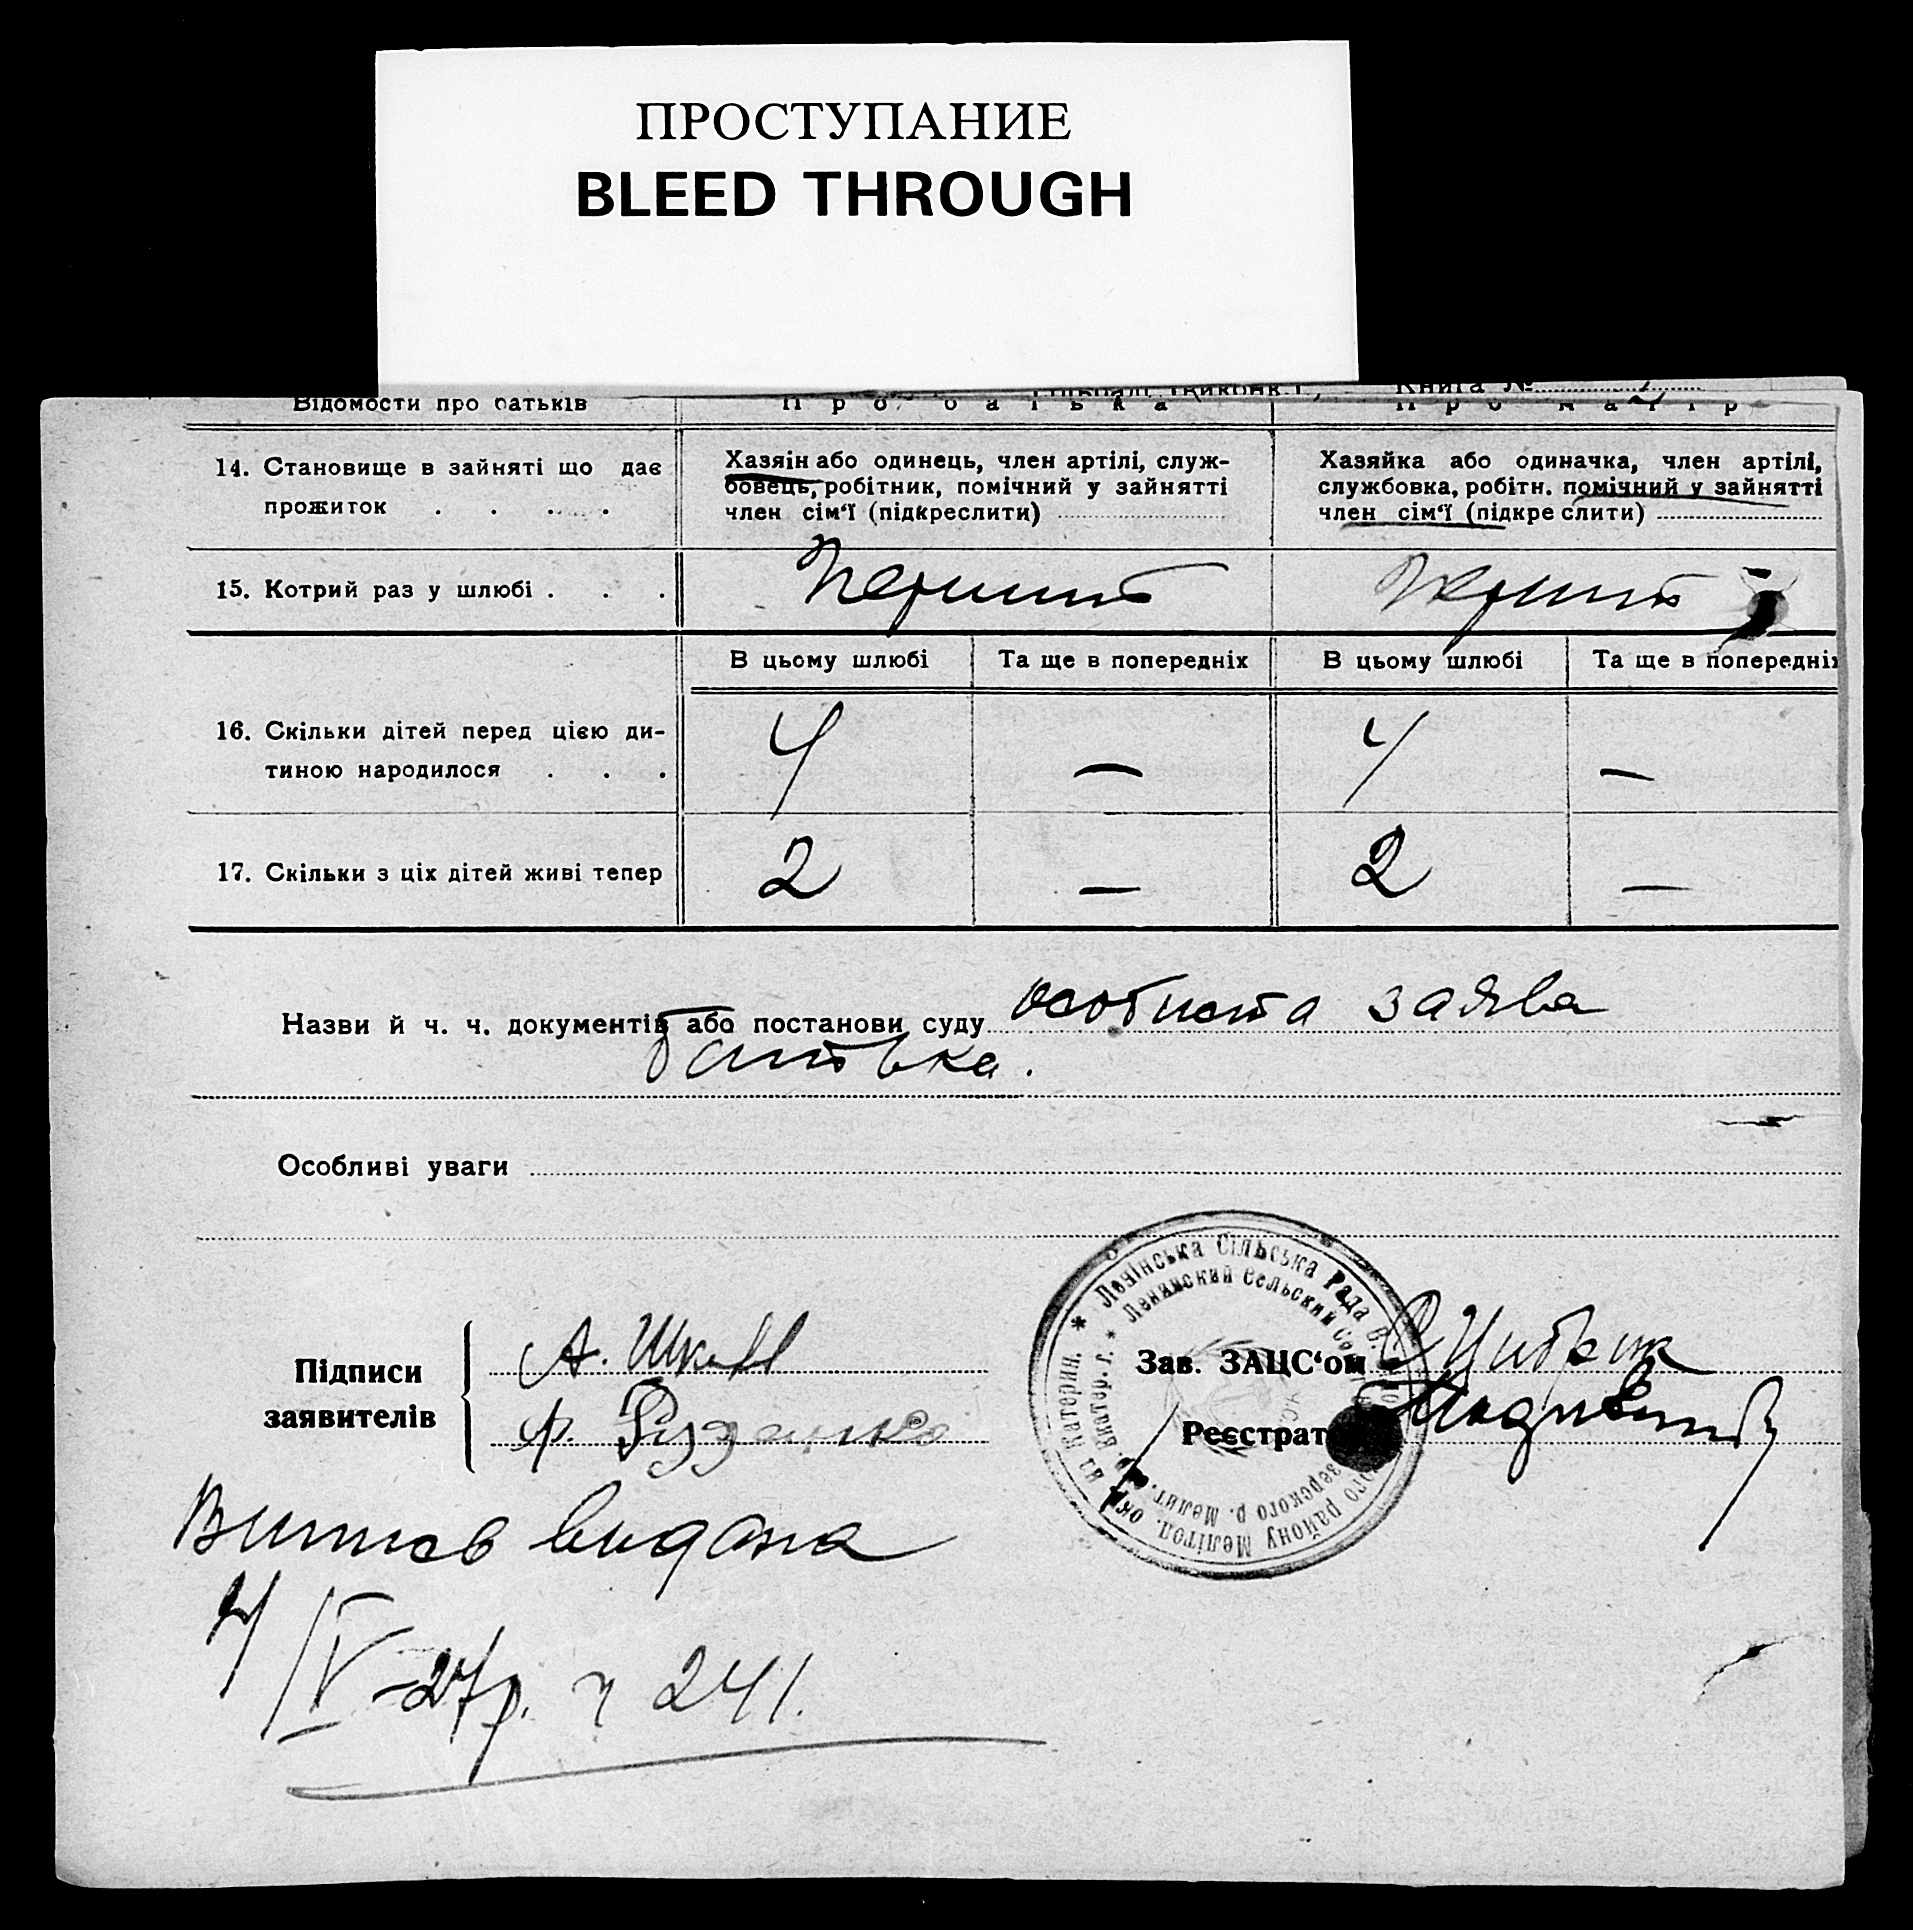 ПРОСТУПАНИЕ
BLEED THROUGH
Книга №
Відомости про батьків
Про батька
Про матір
14. Становище в зайняті що дає
прожиток . . . .
Хазяін або одинець, член артілі, служ-
бовець, робітник, помічний у зайнятті
член сім'ї (підкреслити)
Хазяйка або одиначка, член артілі,
службовка, робітн. помічний у зайнятті
член сім'ї (підкреслити)
15. Котрий раз у шлюбі . . .
Перший
Перший
В цьому шлюбі
Та ще в попередніх
В цьому шлюбі
Та ще в попередніх
16. Скільки дітей перед цією ди-
тиною народилося . . .
4
—
4
—
17. Скільки з ціх дітей живі тепер
2
—
2
—
Назви й ч. ч. документів або постанови суду особиста заява
батька.
Особливі уваги
Підписи
заявителів
А.
Ф. Руденко
Зав. ЗАЦС'ом
Реєстрат
* Ленінська Сільська Рада
Ленинский Сельский
району Мелітоп. окр. на Катерин.
зерского р. Мелит. Екатер. г. *
Випись видана
4/IV-27р. ч 241.